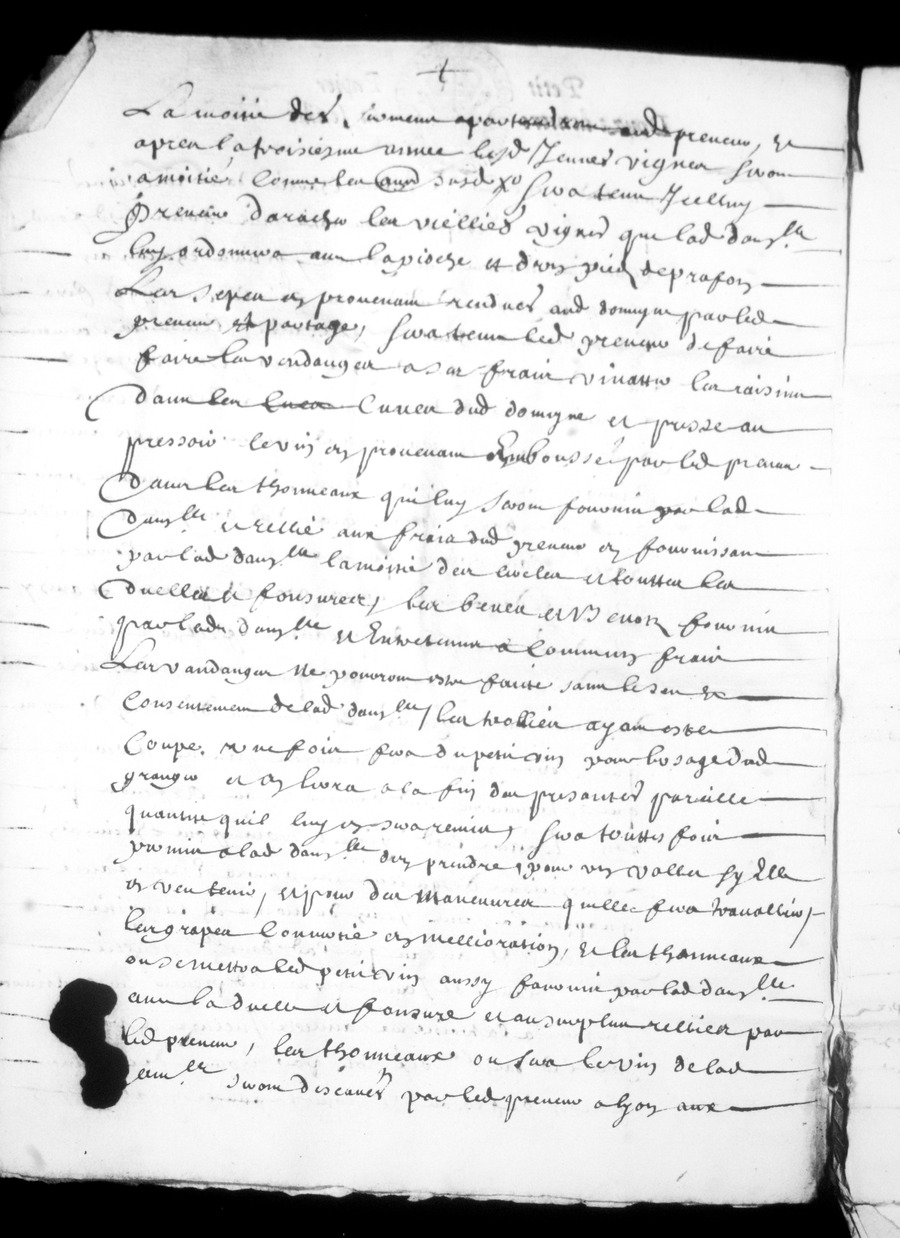 La moitié des semene apartendront aud preneur, et
apres la troisiesme annee lesd Jeunes vignes seront
a moitié comme les susd sera tenu Icelluy
Preneur daracher les vieillies vignes que lad dam.lle
luy ordonnera avec la pioche et deux pieds de prafon
Les sepes en provenant rendues aud domeyne par led
preneur et partagé, sera tenu led preneur de faire
faire les vendanges a ses frais vinatter les raisins
Dans les cuves dud domeyne et presse au
pressoir le vin en provenant Embousse par led preneur
Dans les thonneaux qui luy seront fournis par lad
Dam.lle et rellié aux frais dud preneur en fournissant
par lad dam.lle la moitié des cercles et touttes les
Duelles et fonsures, les benes et fournis
par lade dam.lle et Entretenus a communs frais
Les vandanges ne pouront estre faitte sans le seu et
consentement de lad dam.lle les treillies ayant estee
Coupé une fois fera du petit vin pour lusage dud
granger et en livra a la fin des presantes pareille
quantité quil luy en sera remis, sera touttes fois
permis a lad dam.lle den prendre pour un vallet sy Elle
en veu tenir, et pour des maneuvres quelle fera travallier,
les grapes Connertie en mellioration, et les thonneaux
ou se mettra led petit vin aussy fournis par lad dam.lle
avec la duelle et fonsure et au surplus rellier par
led preneur, les thonneaux ou sera le vin de lad
dam.lle seront descendés par led preneur a lyon aux